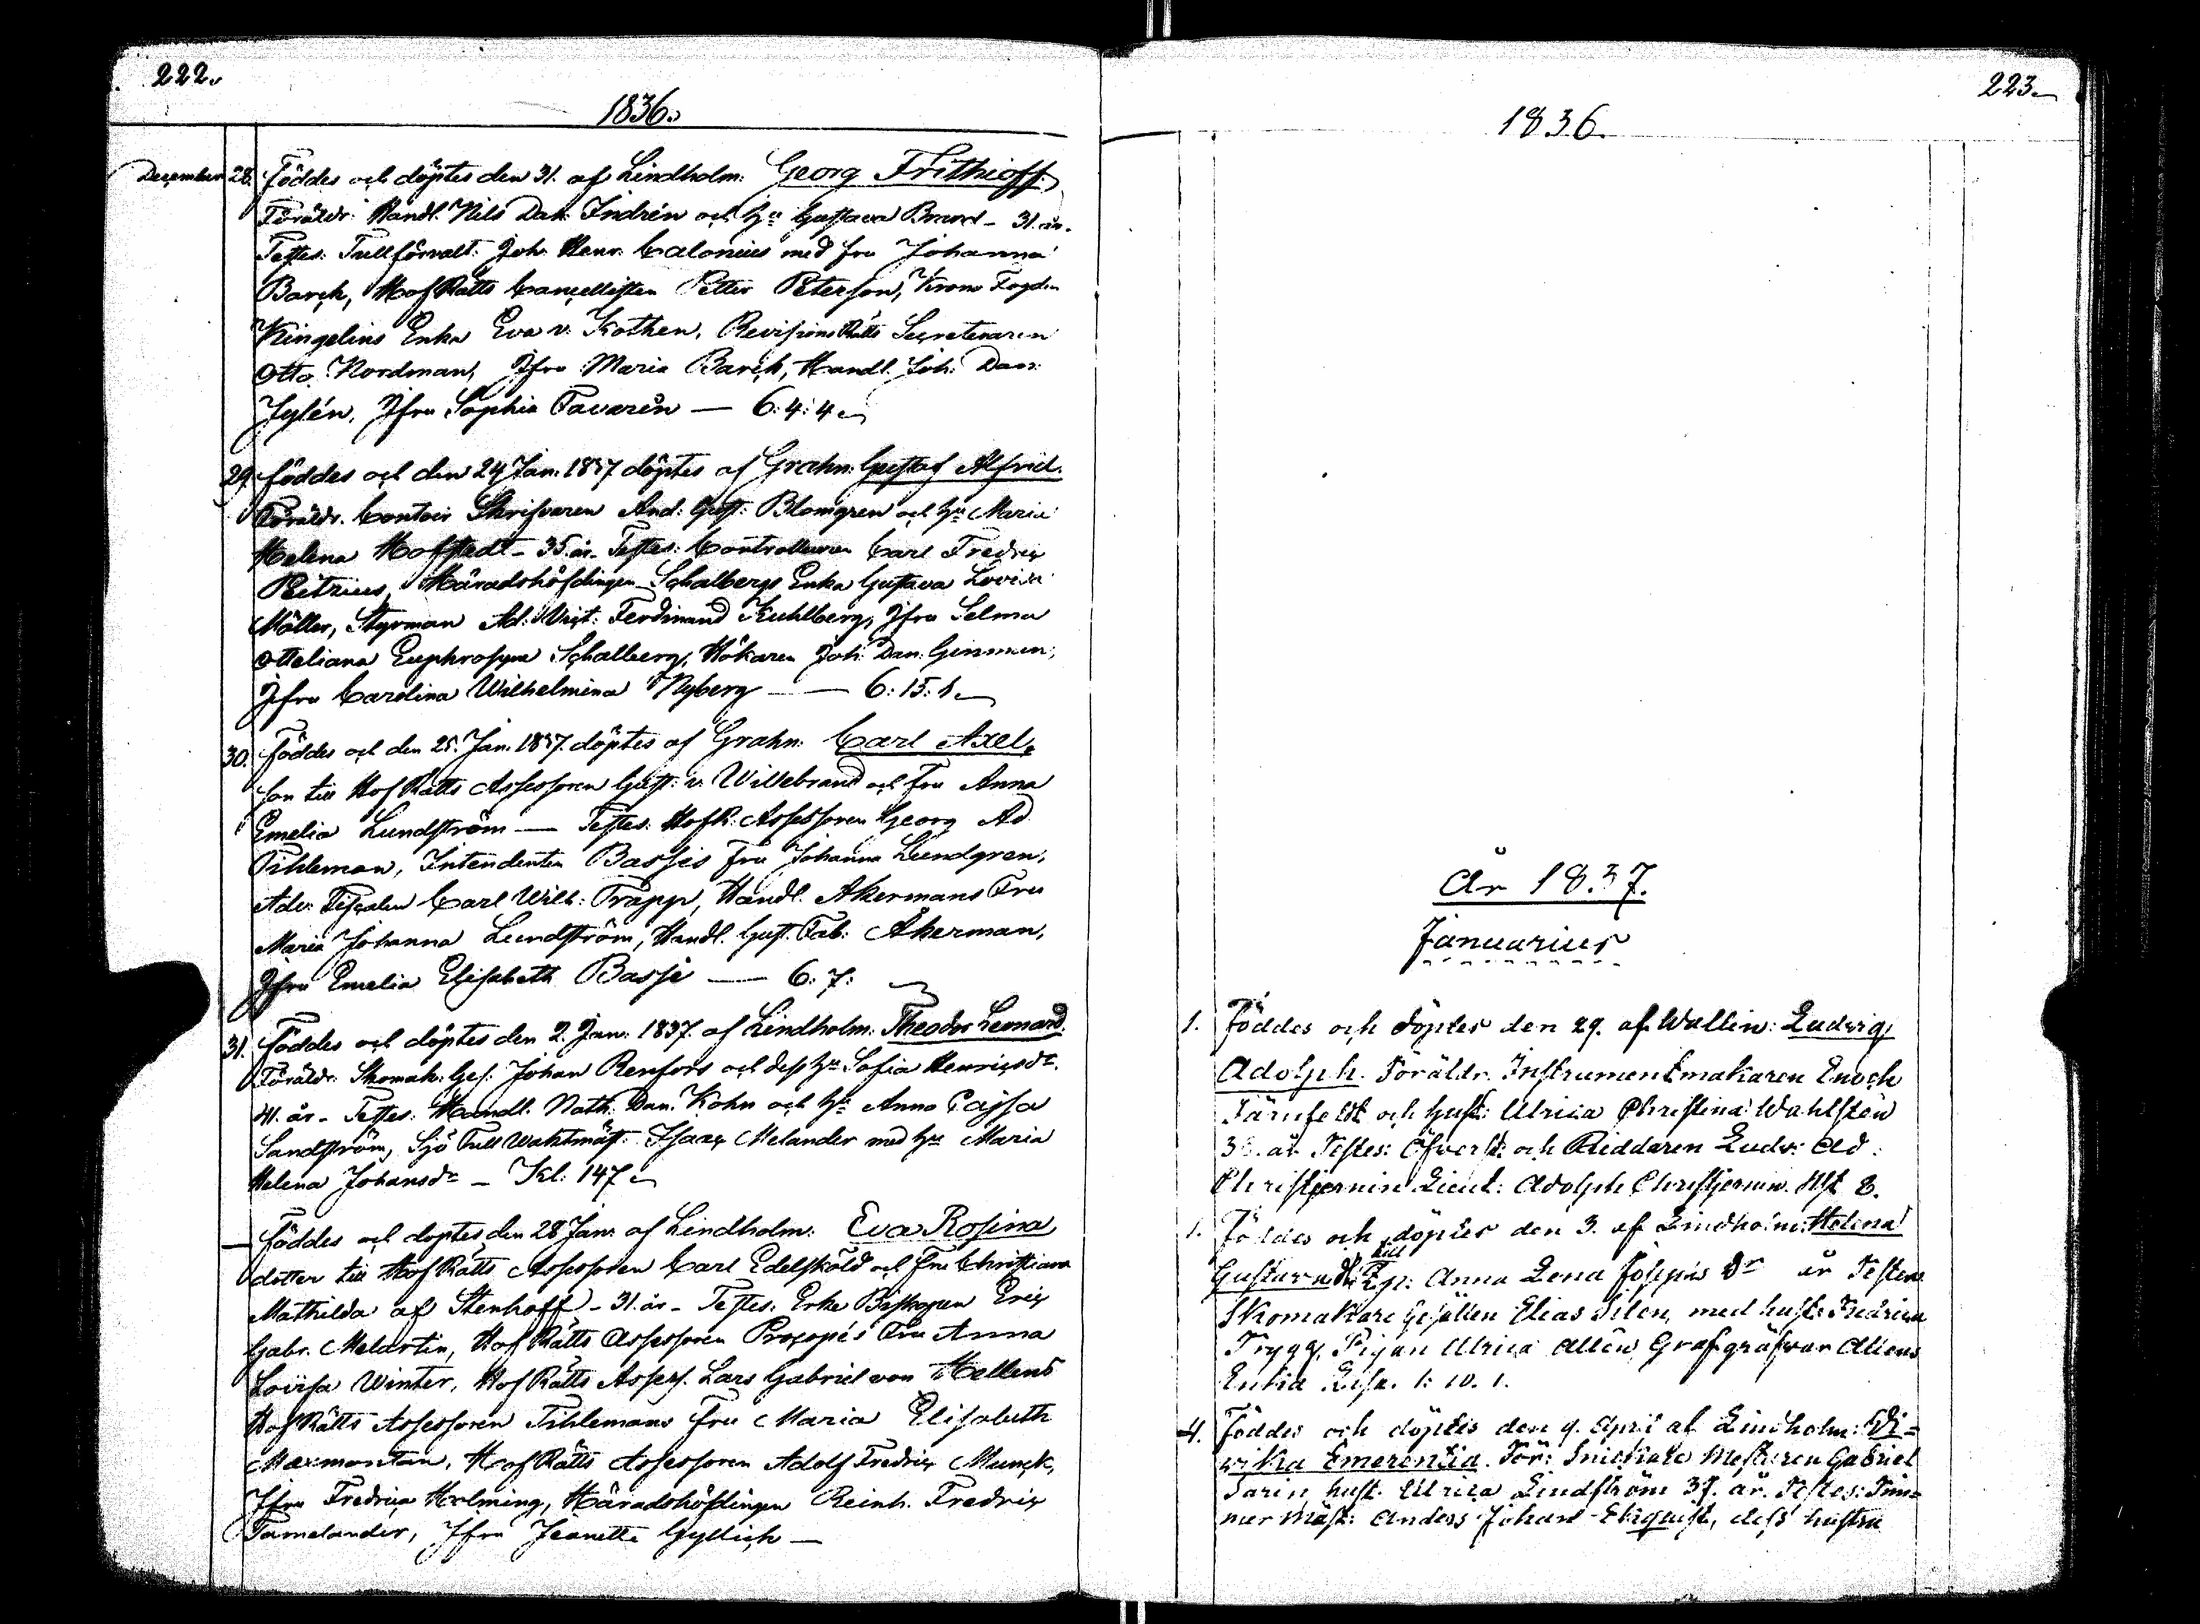 222.
1836.
December 28. Föddes och döptes den 31. af Lindholm: Georg Frithioff.
Föräldr: Handl. Nils Dan: Indrén och hu Gustava Brunel - 31. år.
Testes: Tullförvalt: Joh. Henr. Calonius med fru Johanna
Barck, HofRätts Cancellisten Petter Peterson, Krono Fogden
Ringelins Enka Eva v. Kothen, RevisionsRätts Secreteraren
Otto Nordman, Jfru Maria Barck, Handl. Joh: Dan:
Jylén, Jfru Sophia Tavarén — 6:4:4
29. föddes och den 24 Jan. 1837 döptes af Grahn: Gustaf Alfrid.
Föräldr. Contoirs Skrifvaren And: Gust: Blomgren och hu Maria
Helena Hofstedt - 35. år. Testes: Controlleuren Carl Fredric
Petrius, Häradshöfdingen Schalbergs Enka Gustava Lovisa
Möller, Styrman Ad: Vict: Ferdinand Kuhlberg, Jfru Selma
Otteliana Euphrosyne Schalberg, Hökaren Joh: Dan: Ginman,
Jfru Carolina Wilhelmina Nyberg — 6:15:1
30. Föddes och den 25. Jan. 1837. döptes af Grahn: Carl Axel,
son till HofRätts Assessoren Gust: v. Willebrand och Fru Anna
Emelia Lundström — Testes: HofR: Assessoren Georg Ad
Tihleman, Intendenten Bassis Fru Johanna Lundgren,
Adv: Fiscalen Carl Wilh: Trapp, Handl. Åkermans Fru
Maria Johanna Lundström, Handl. Gust. Fab: Åkerman,
Jfru Emelia Elisabeth Basse — 6:7:
31. Föddes och döptes den 2. Jan: 1837. af Lindholm: Theodor Leonard.
Föräldr. Skomak: Ges: Johan Renfors och dess hu Sofia Henricsdr.
41. år - Testes: Handl. Nath: Dan. Kohn och hu Anna Cajsa
Sandström, Sjö Tull Wakhtmäst: Isaac Melander med hu Maria
Helena Johansdr - Kl: 147
— föddes och doptes den 28 Jan: af Lindholm: Eva Rosina
dotter till HofRätts Assessoren Carl Edelsköld och Fru Christiana
Mathilda af Stenhoff - 31. år - Testes: Erke Biskopen Eric
Gabr. Melartin, HofRätts Assessoren Procopés Fru Anna
Lovisa Winter, HofRätts Assess. Lars Gabriel von Hellens
HofRätts Assessoren Tihlemans fru Maria Elisabeth
Maxmontan, HofRätts Assessoren Adolf Fredric Munck,
Jfru Fredrica Holming, Häradshöfdingen Reinh. Fredric
Tamelander, Jfru Jeanette Gyllich —
223.
1836.
År 1837.
Januarius
1. Föddes och döptes den 29. af Wallin: Ludvig
Adolph. Föräldr. Instrumentmakaren Enoch
Järnfeldt och hust: Ulrica Christina Wahlstén
år. Testes: Öfverst: och Riddaren Ludv: Ad:
Christiernin Lieut: Adolph Christjernin. Hft 8.
1. Föddes och döptes den 3. af Lindholm: Helena
Gustava dr till Qp: Anna Lena Josephs Dr år Testes
Skomakare Gesällen Elias Silen, med hust. Fredrica
Trygg, Pigan Ulrica Allén, Grafgräfvar Aliens
Enkia Lisa. 1:10.1.
4. Föddes och döptes den 9. April af Lindholm: Vi=
vika Emerentia. För: Snickare Mestaren Gabriel
Sarin, hust. Ulrica Lindström 37. år. Testes: Tim=
mer mäst: Anders Johan Ekquist, dess hustru